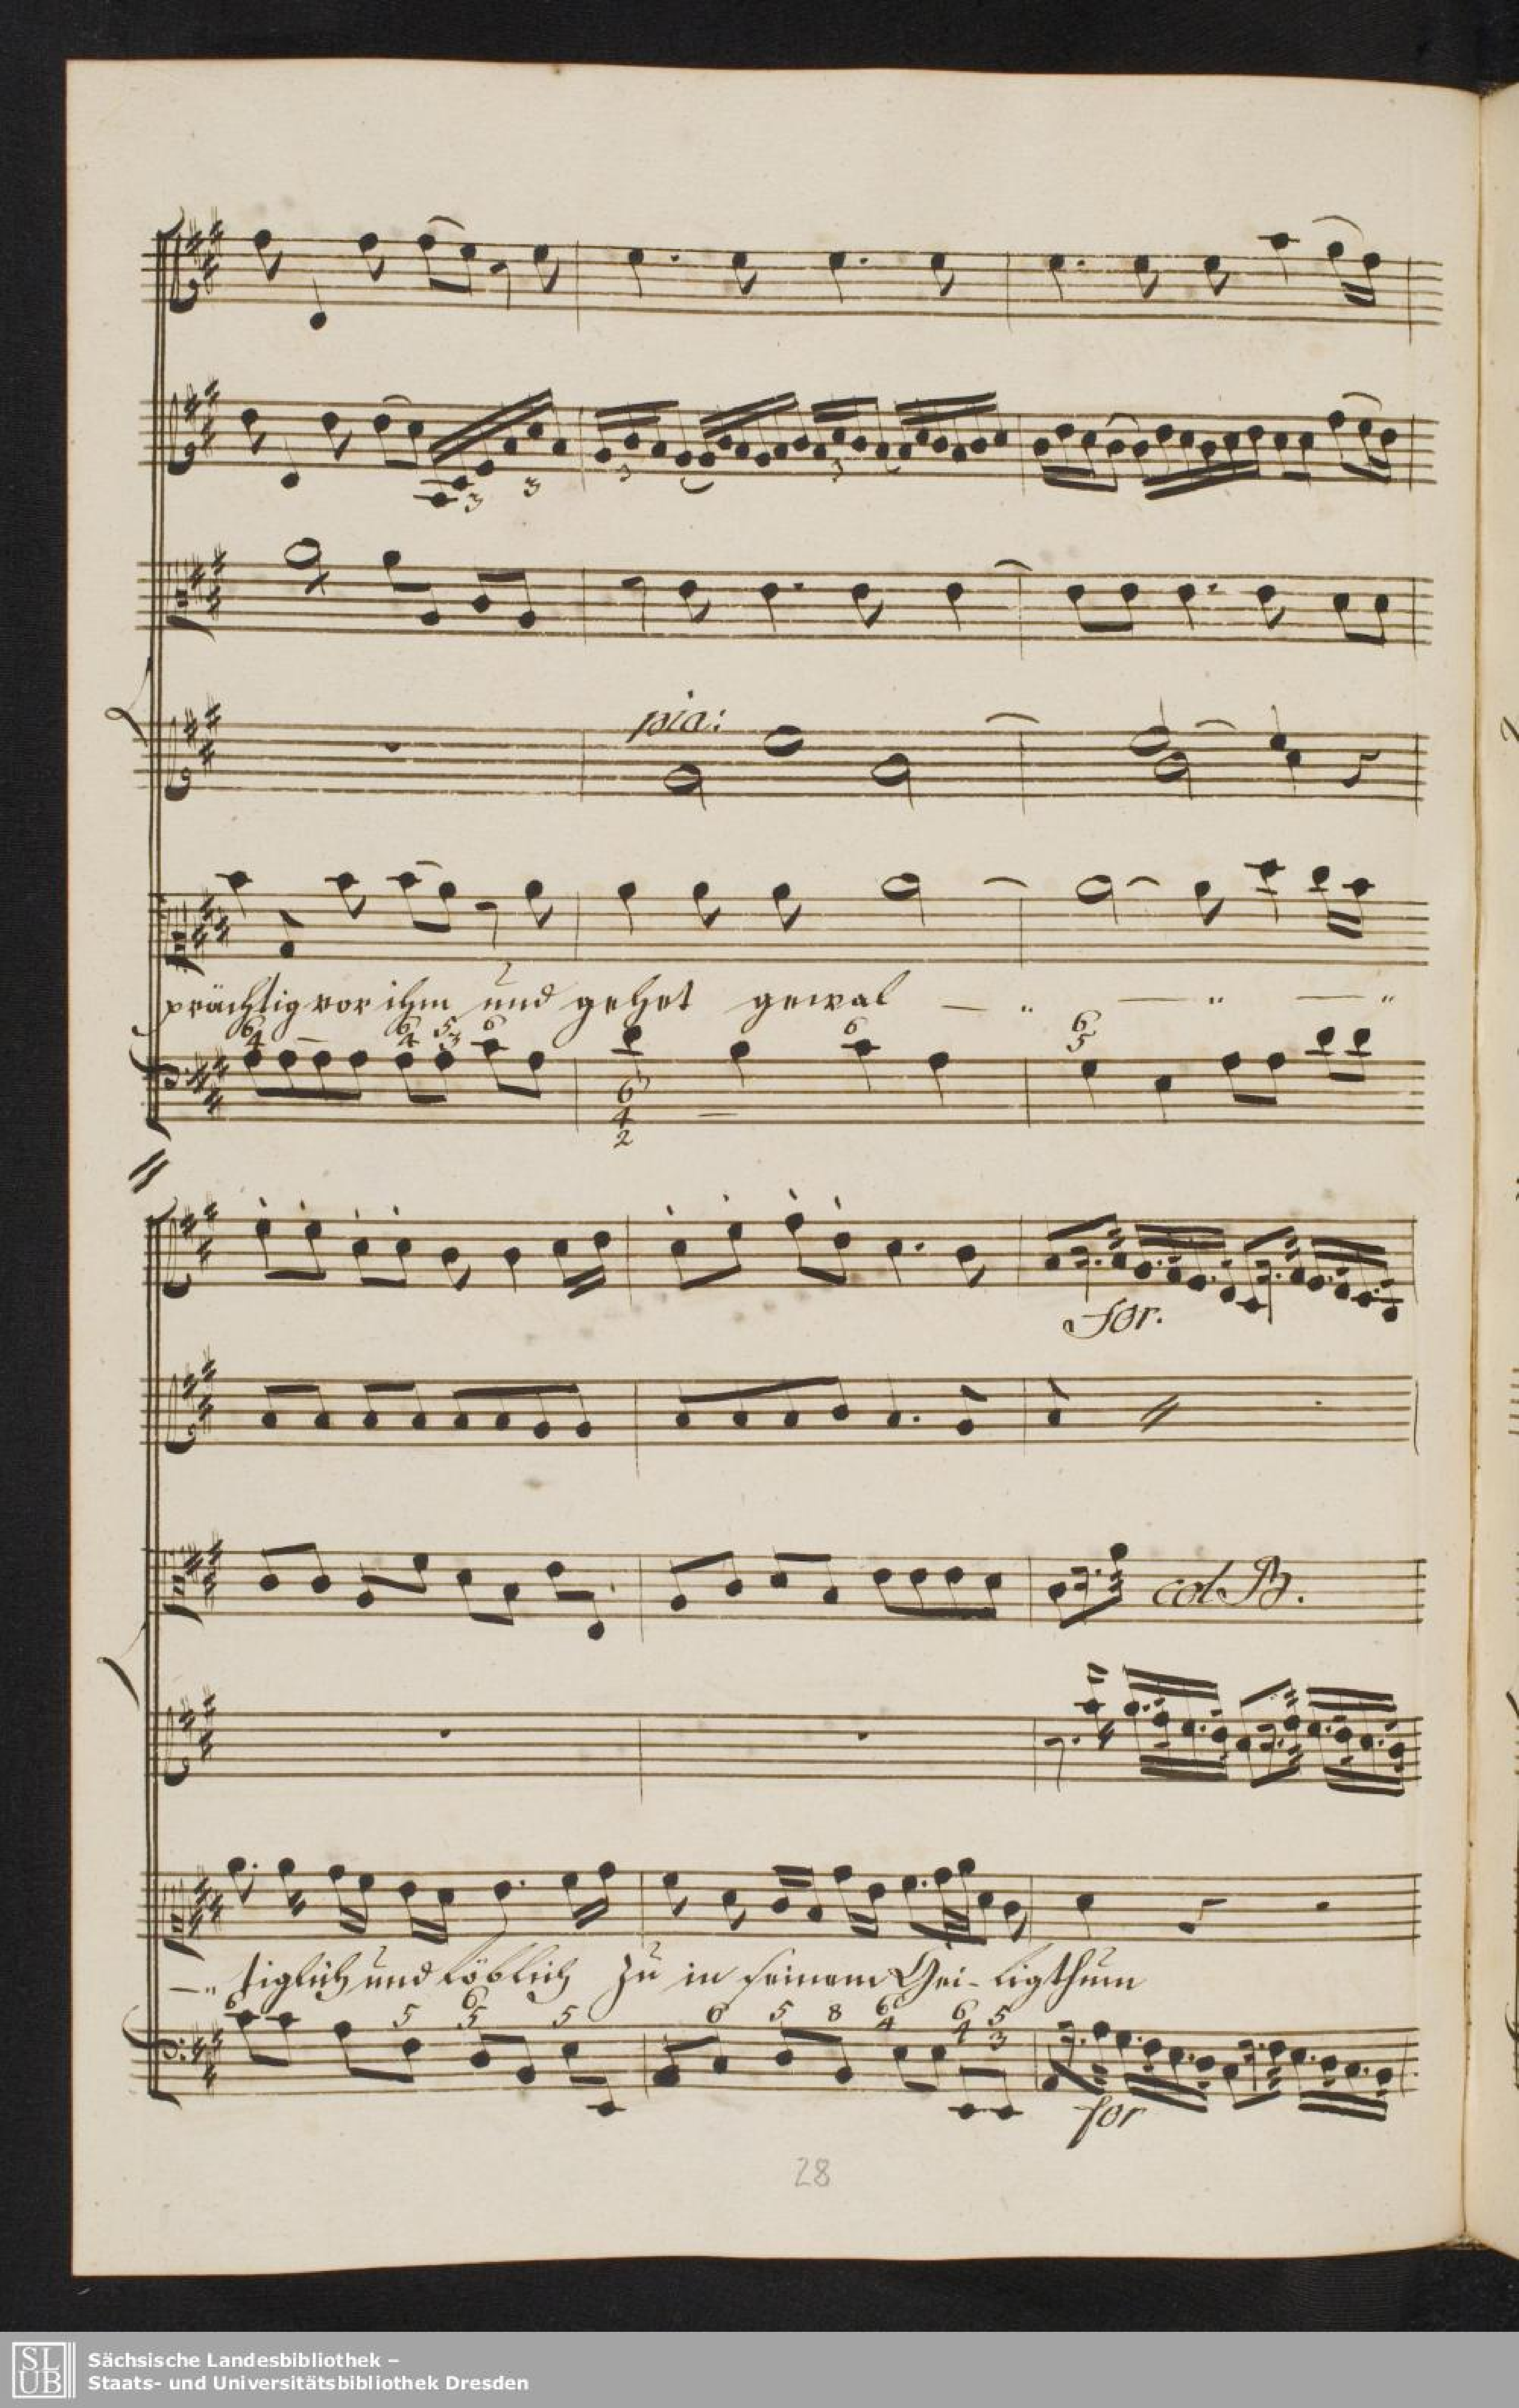 3 3 3 3
pia:
prächtig vor ihm und gehet gewal - „ - „ - „
6 4 - 6 4 5 3 6 6 4 2 - 6 6 5
for.
col B.
- „ tiglich und löblich zu in seinem Hei- ligthum
6 5 6 5 5 6 5 8 6 4 6 4 5 3
for
28
SLUB
Sächsische Landesbibliothek –
Staats- und Universitätsbibliothek Dresden